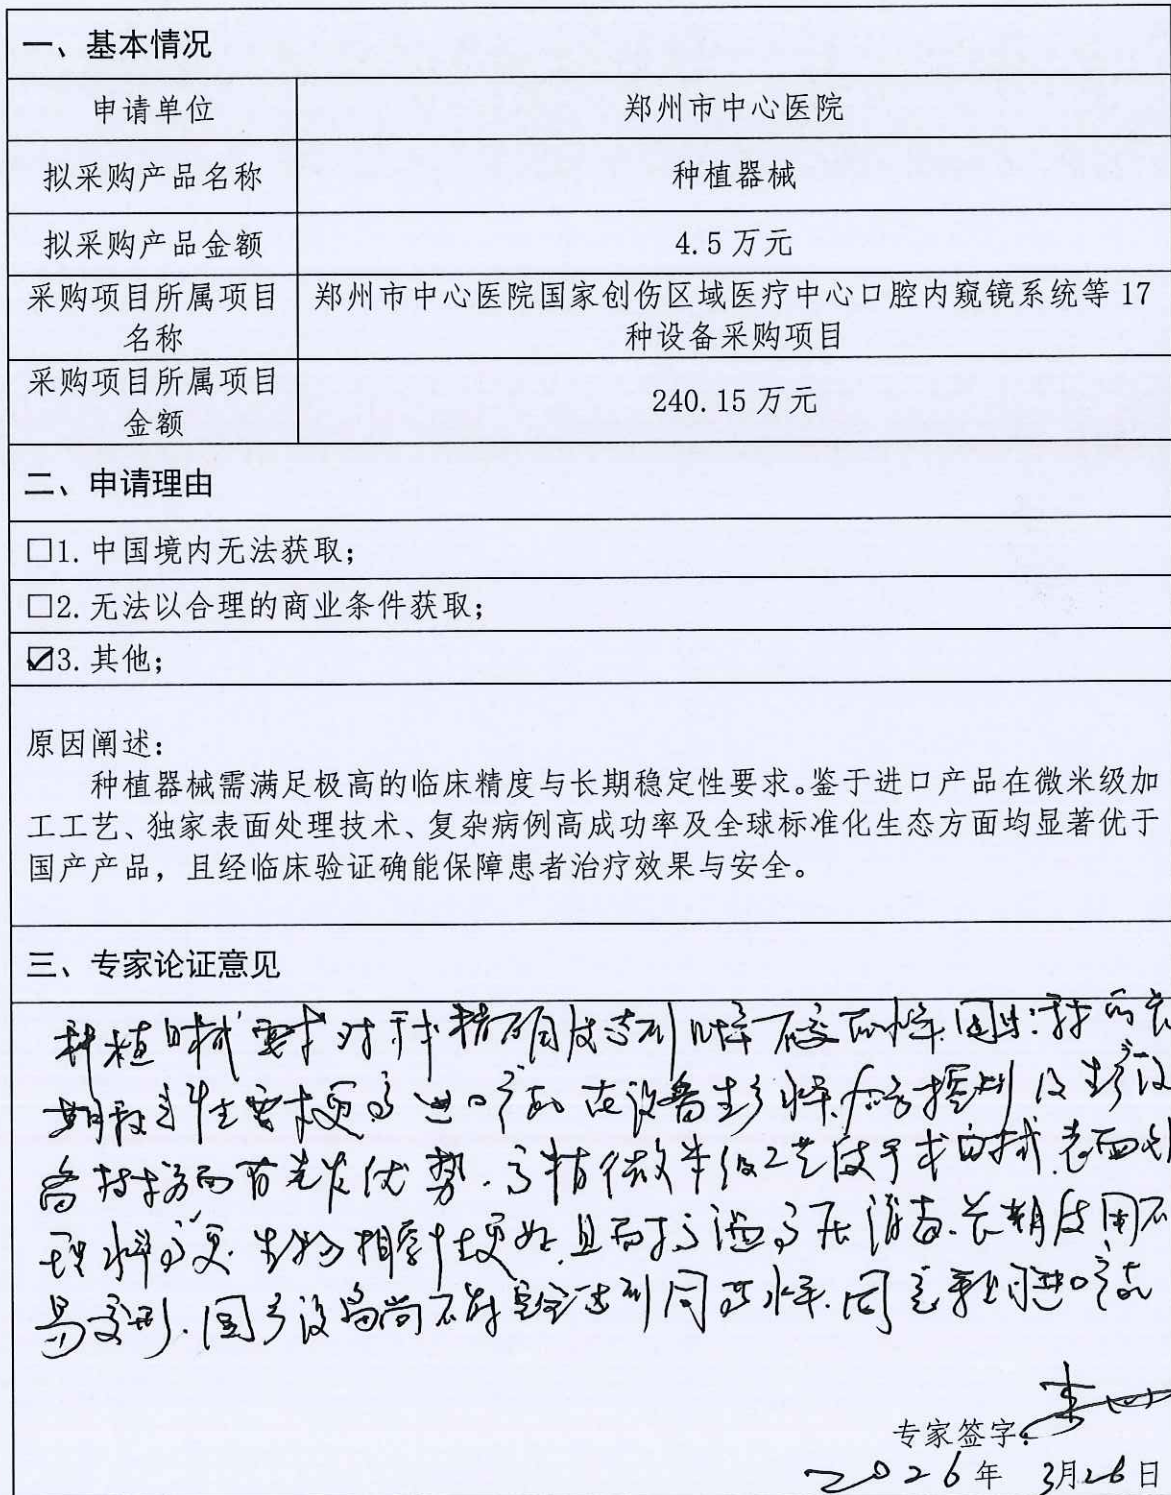 一、基本情况
申请单位 郑州市中心医院
拟采购产品名称 种植器械
拟采购产品金额 4.5万元
采购项目所属项目名称 郑州市中心医院国家创伤区域医疗中心口腔内窥镜系统等17
种设备采购项目
采购项目所属项目金额 240.15万元
二、申请理由
□1.中国境内无法获取；
□2.无法以合理的商业条件获取；
☑3.其他；
原因阐述：
种植器械需满足极高的临床精度与长期稳定性要求。鉴于进口产品在微米级加
工工艺、独家表面处理技术、复杂病例高成功率及全球标准化生态方面均显著优于
国产产品，且经临床验证确能保障患者治疗效果与安全。
三、专家论证意见
种植器械要求对手术精确度达到
期稳定性要求更高 进口产品在设备生产 及生产设
备 方面有先发优势.高精微米级工艺 手术 .表面处
理 更 生物相容性更好,且耐高温高压消毒.长期使用不
易变形.国产设备尚不能 达到同等水平.同意 进口产品
专家签字：
2026年 3月26日